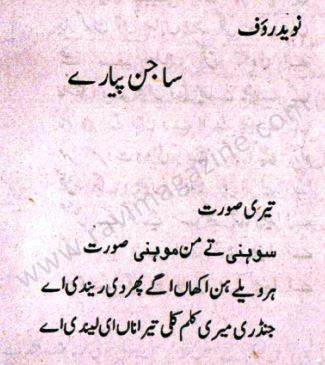 نوید رؤف
ساجن پیارے
تیری صورت
سوہنی تے من موہنی صورت
ہر ویلے ہن اکھاں اگے پھر دی ریندی اے
جنڈری میری کلم کلی تیرا ناں ای لیندی اے
www.ravimagazine.com